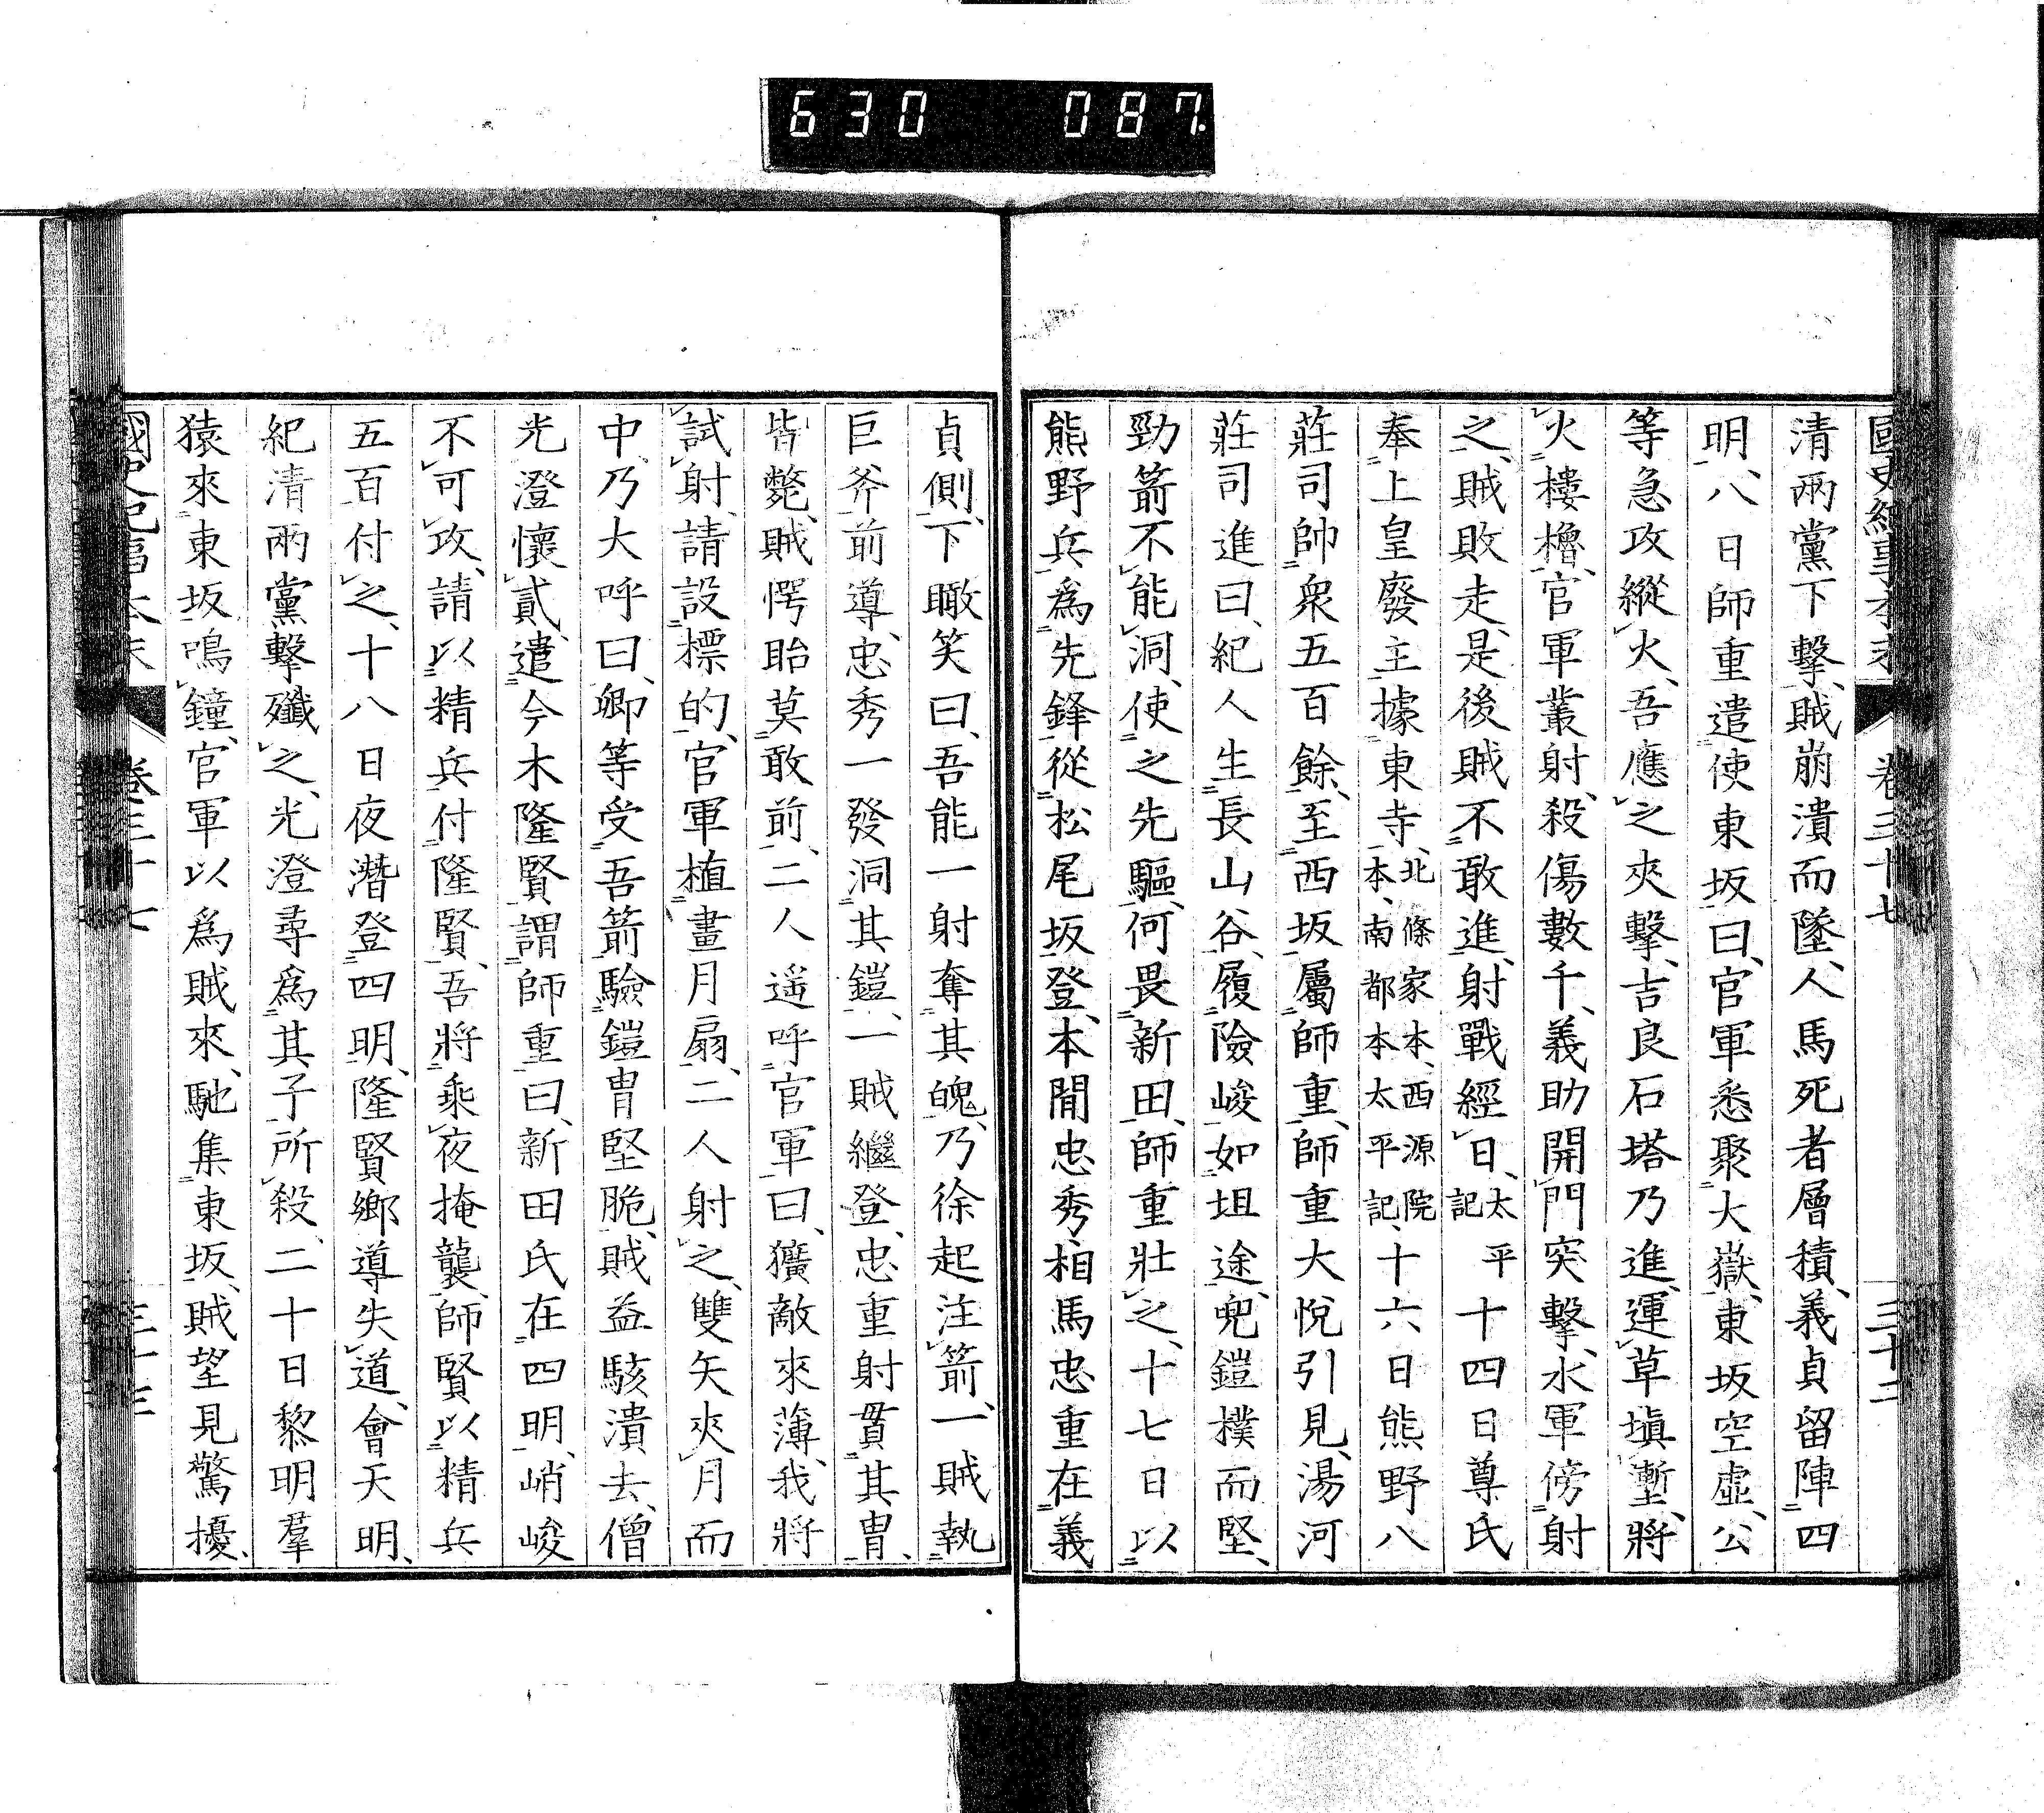 630 087
國史紀事本末 卷三十七 三十二
清兩黨下擊、賊崩潰而墜、人馬死者層積、義貞留陣四
明、八日師重遣使東坂曰、官軍悉聚大嶽、東坂空虛、公
等急攻縱火、吾應之夾擊、吉良石塔乃進、運草塡塹、將
火樓櫓、官軍叢射、殺傷數千、義助開門突擊、水軍傍射
之、賊敗走、是後賊不敢進、射戰經日、太平記 十四日尊氏
奉上皇廢主據東寺、北條家本、西源院本、南都本太平記、十六日熊野八
莊司帥衆五百餘、至西坂屬師重、師重大悅引見、湯河
莊司進曰、紀人生長山谷、履險峻如坦途、兜鎧撲而堅、
勁箭不能洞、使之先驅、何畏新田、師重壯之、十七日以
熊野兵爲先鋒從松尾坂登、本間忠秀、相馬忠重在義
貞側、下瞰笑曰、吾能一射奪其魄、乃徐起注箭、一賊執
巨斧前導、忠秀一發洞其鎧、一賊繼登、忠重射貫其冑、
皆斃、賊愕眙莫敢前、二人遥呼官軍曰、獷敵來薄、我將
試射、請設標的、官軍植畫月扇、二人射之、雙矢夾月而
中、乃大呼曰、卿等受吾箭驗鎧冑堅脆、賊益駭潰去、僧
光澄懷貳、遣今木隆賢謂師重曰、新田氏在四明、峭峻
不可攻、請以精兵付隆賢、吾將乘夜掩襲、師賢以精兵
五百付之、十八日夜潛登四明、隆賢鄉導失道、會天明、
紀清兩黨擊殲之、光澄尋爲其子所殺、二十日黎明羣
猿來東坂鳴鐘、官軍以爲賊來、馳集東坂、賊望見驚擾、
國史紀事本末 卷三十七